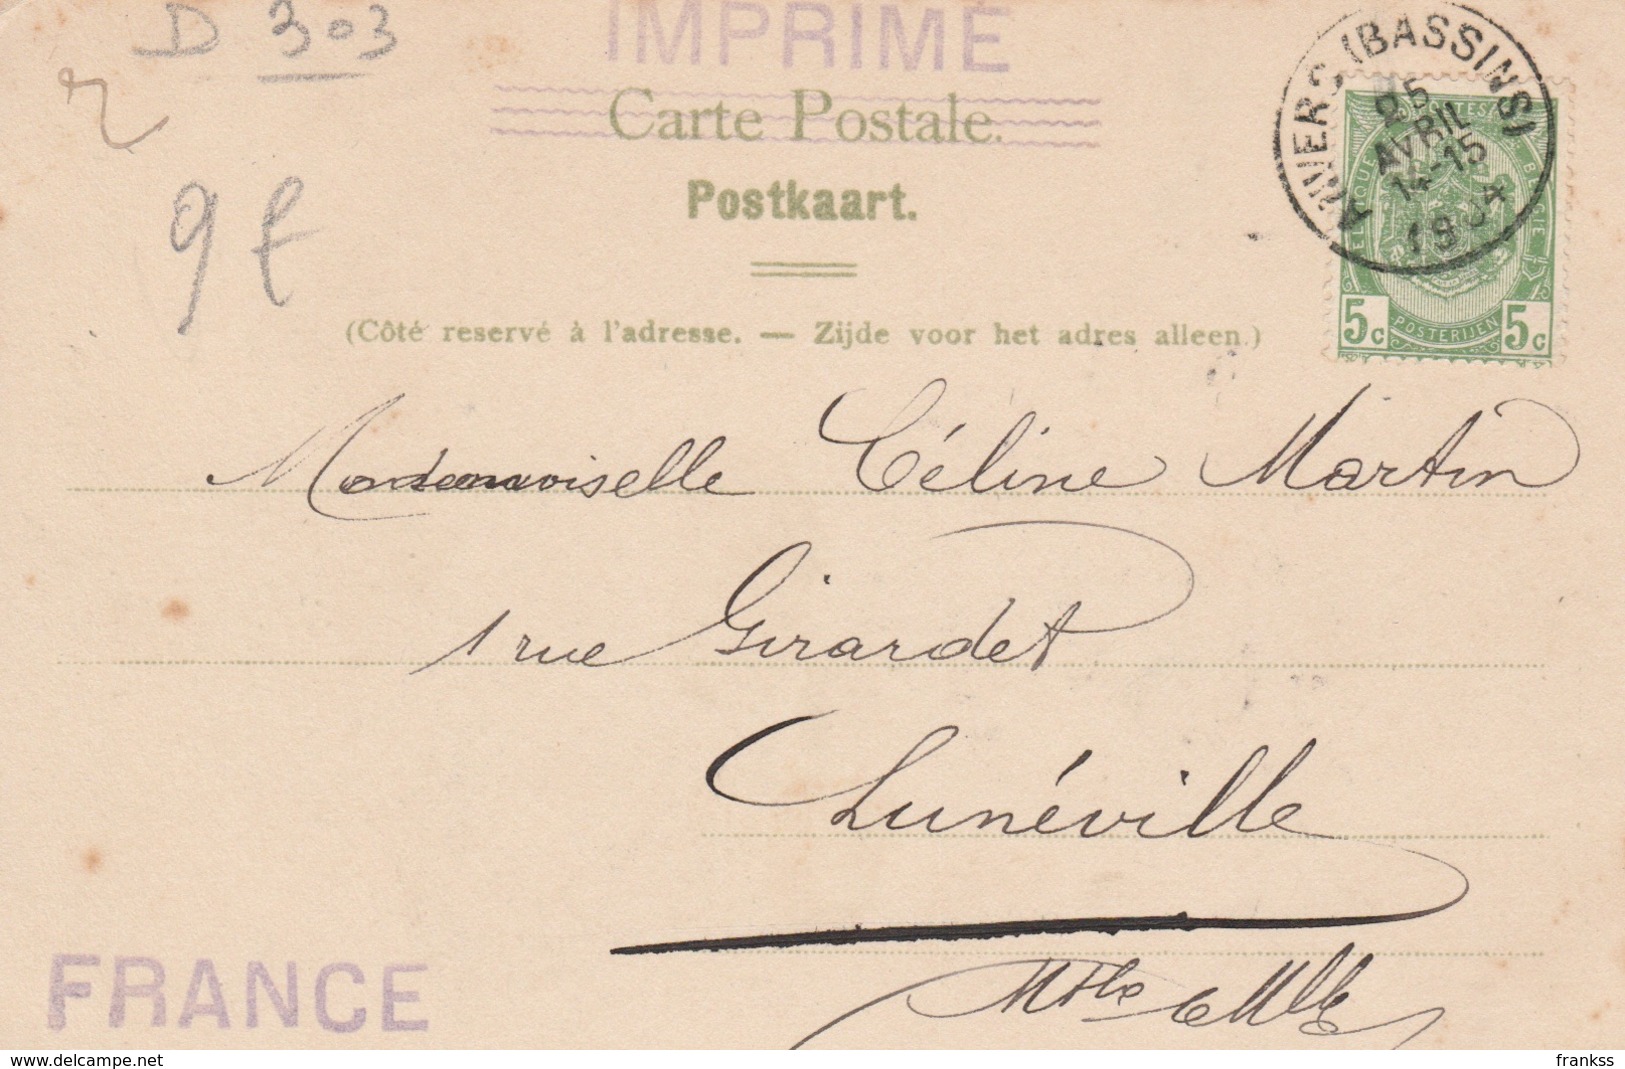 D 303
IMPRIMÉ
Carte Postale.
Postkaart.
(Côté reservé à l'adresse. — Zijde voor het adres alleen.)
ANVERS (BASSINS)
25
AVRIL
14-15
1904
POSTERIJEN
5c 5c
Mademoiselle Céline Martin
1 rue Girardet
Lunéville
Mthe & Mlle
FRANCE
delcampe.net
frankss